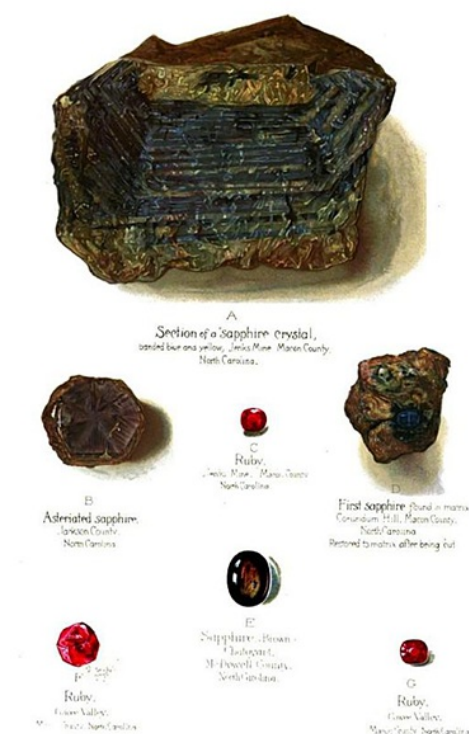 A
Section of a sapphire crystal,
banded blue and yellow, Jenks Mine Macon County,
North Carolina.
B
Asteriated sapphire,
Jackson County,
North Carolina
C
Ruby.
Jenks Mine, Macon County
North Carolina
D
First sapphire found in matrix
Corundum Hill, Macon County,
North Carolina
Restored to matrix after being cut
E
Sapphire, Brown
Chatoyant,
McDowell County,
North Carolina.
F
Ruby.
Cowee Valley,
Macon County, North Carolina
G
Ruby.
Cowee Valley,
Macon County, North Carolina